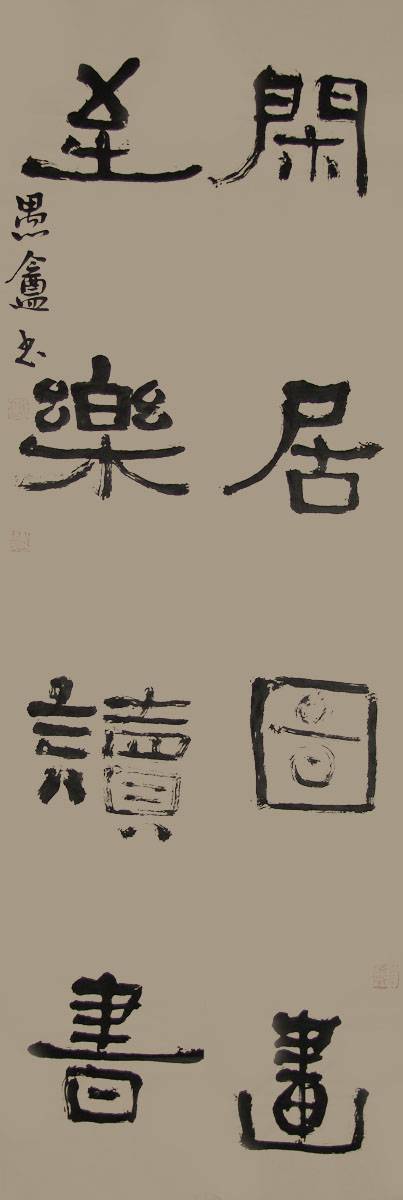 閑居圖畫
至樂讀書
愚盦书